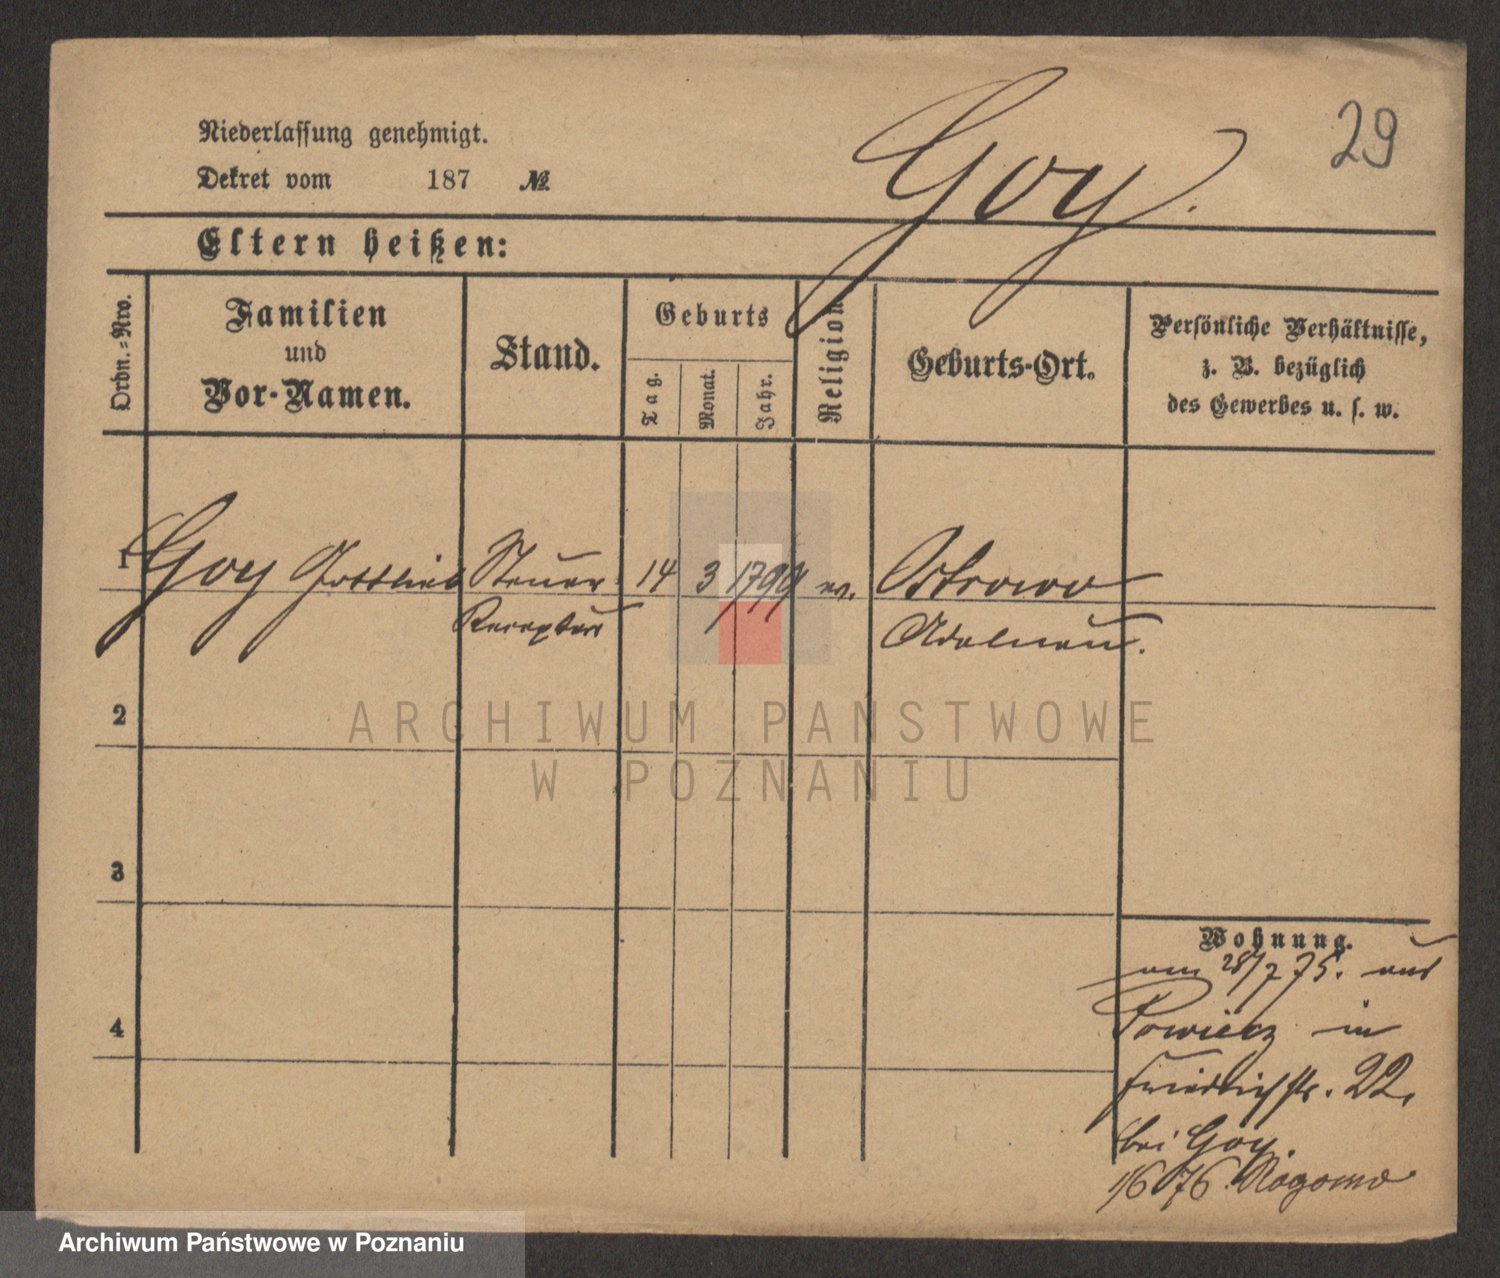 Niederlassung genehmigt.
Dekret vom 187 №
Goy.
29
Eltern heißen:
Ordn.-Nro.
Familien
und
Vor-Namen.
Stand.
Geburts
Tag.
Monat.
Jahr.
Religion
Geburts-Ort.
Persönliche Verhältnisse,
z. B. bezüglich
des Gewerbes u. s. w.
1 Goy Gottlieb Steuer 14 3 1799 ev. Ostrowo
Receptor Adelnau.
2
3
4
Wohnung.
am 28/7 75. aus
Powiecz in
Friedrichstr. 22.
bei Goy.
1/6 76. Rogowo
ARCHIWUM PAŃSTWOWE
W POZNANIU
Archiwum Państwowe w Poznaniu